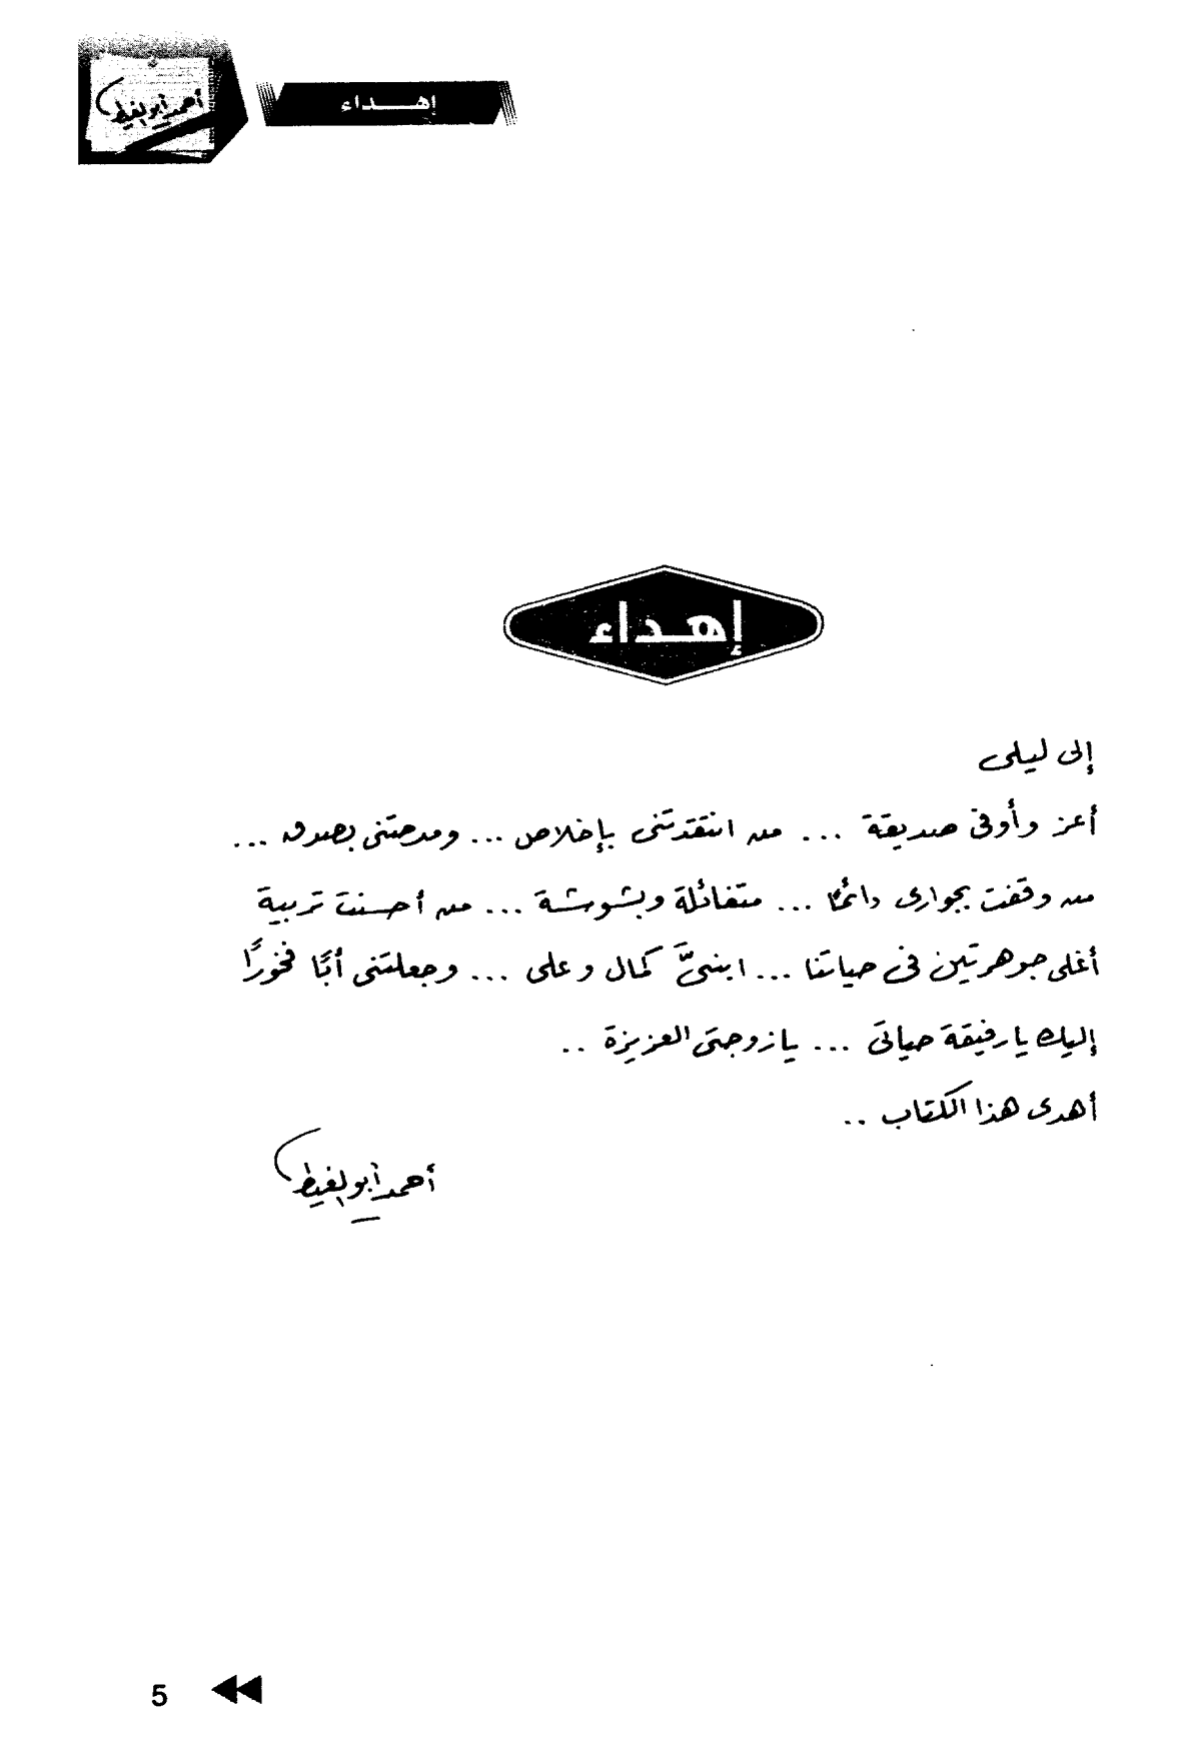 إهــــداء
أحمد أبو الغيط
إهـداء
إلى ليلى
أعز وأوفى صديقة ... من انتقدتنى بإخلاص ... ومدحتنى بصدق ...
من وقفت بجوارى دائمًا ... متفائلة وبشوشة ... من أحسنت تربية
أغلى جوهرتين فى حياتنا ... ابنىَّ كمال وعلى ... وجعلتنى أبًا فخورًا
إليك يا رفيقة حياتى ... يا زوجتى العزيزة ..
أهدى هذا الكتاب ..
أحمد أبو الغيط
5